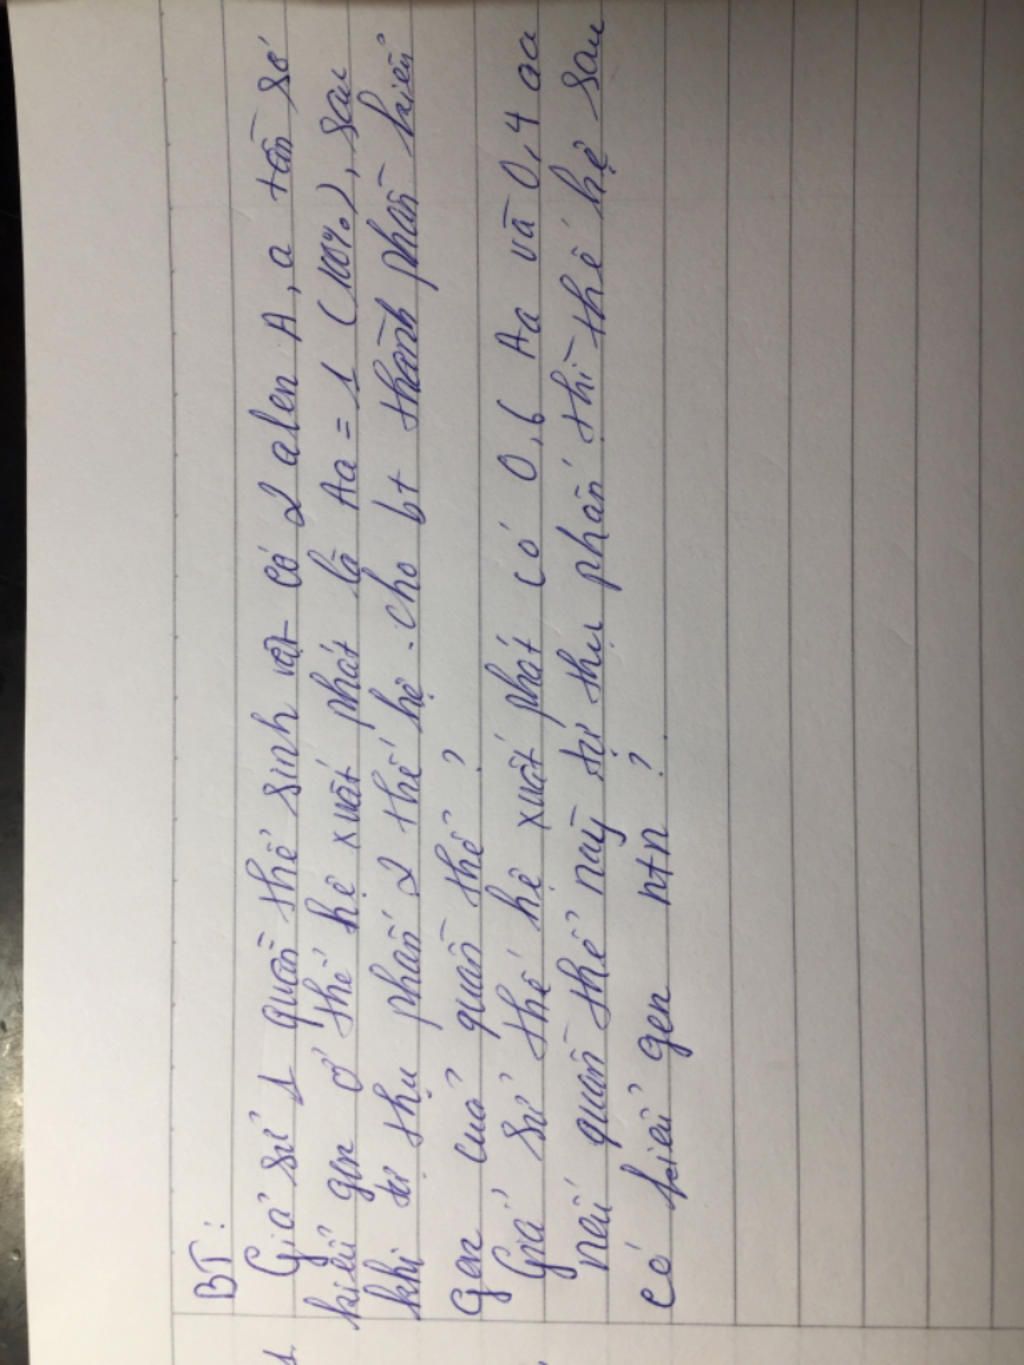 BT:
Giả sử 1 quần thể sinh vật có 2 alen A, a tần số
kiểu gen ở thế hệ xuất phát là Aa = 1 (100%), sau
khi tự thụ phấn 2 thế hệ. cho bt thành phần kiểu
gen của quần thể ?
Giả sử thế hệ xuất phát có 0,6 Aa và 0,4 aa
nếu quần thể này tự thụ phấn thì thế hệ sau
có kiểu gen ntn ?